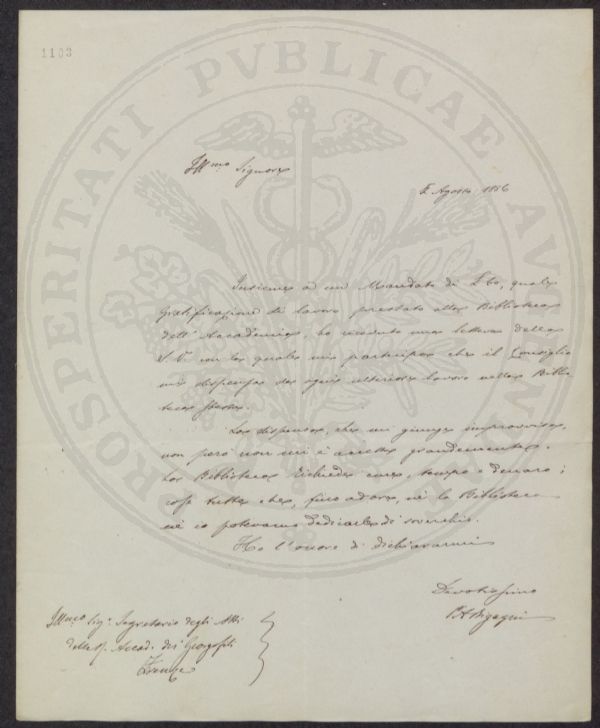 1103
PROSPERITATI PVBLICAE AVGENDAE
Ill.mo Signore
Agosto 1886
Insieme ad un Mandato di quale
gratificazione di lavoro prestato alla Biblioteca
dell'Accademia, ho ricevuto una lettera della
S. V. con la quale mi partecipa che il Consiglio
mi dispensa da ogni ulteriore lavoro nella Biblio
teca stessa.
La dispensa, che mi giunge improvvisa,
non però non mi è accetta grandemente.
La Biblioteca richiede cure, tempo e denaro;
cose tutte che, fino ad ora, nè la Biblioteca
nè io potevamo dedicarle di soverchio.
Ho l'onore di dichiararmi
Devotissimo
Ill.mo Sig. Segretario degli Atti
della R. Accad. dei Georgofili
Firenze